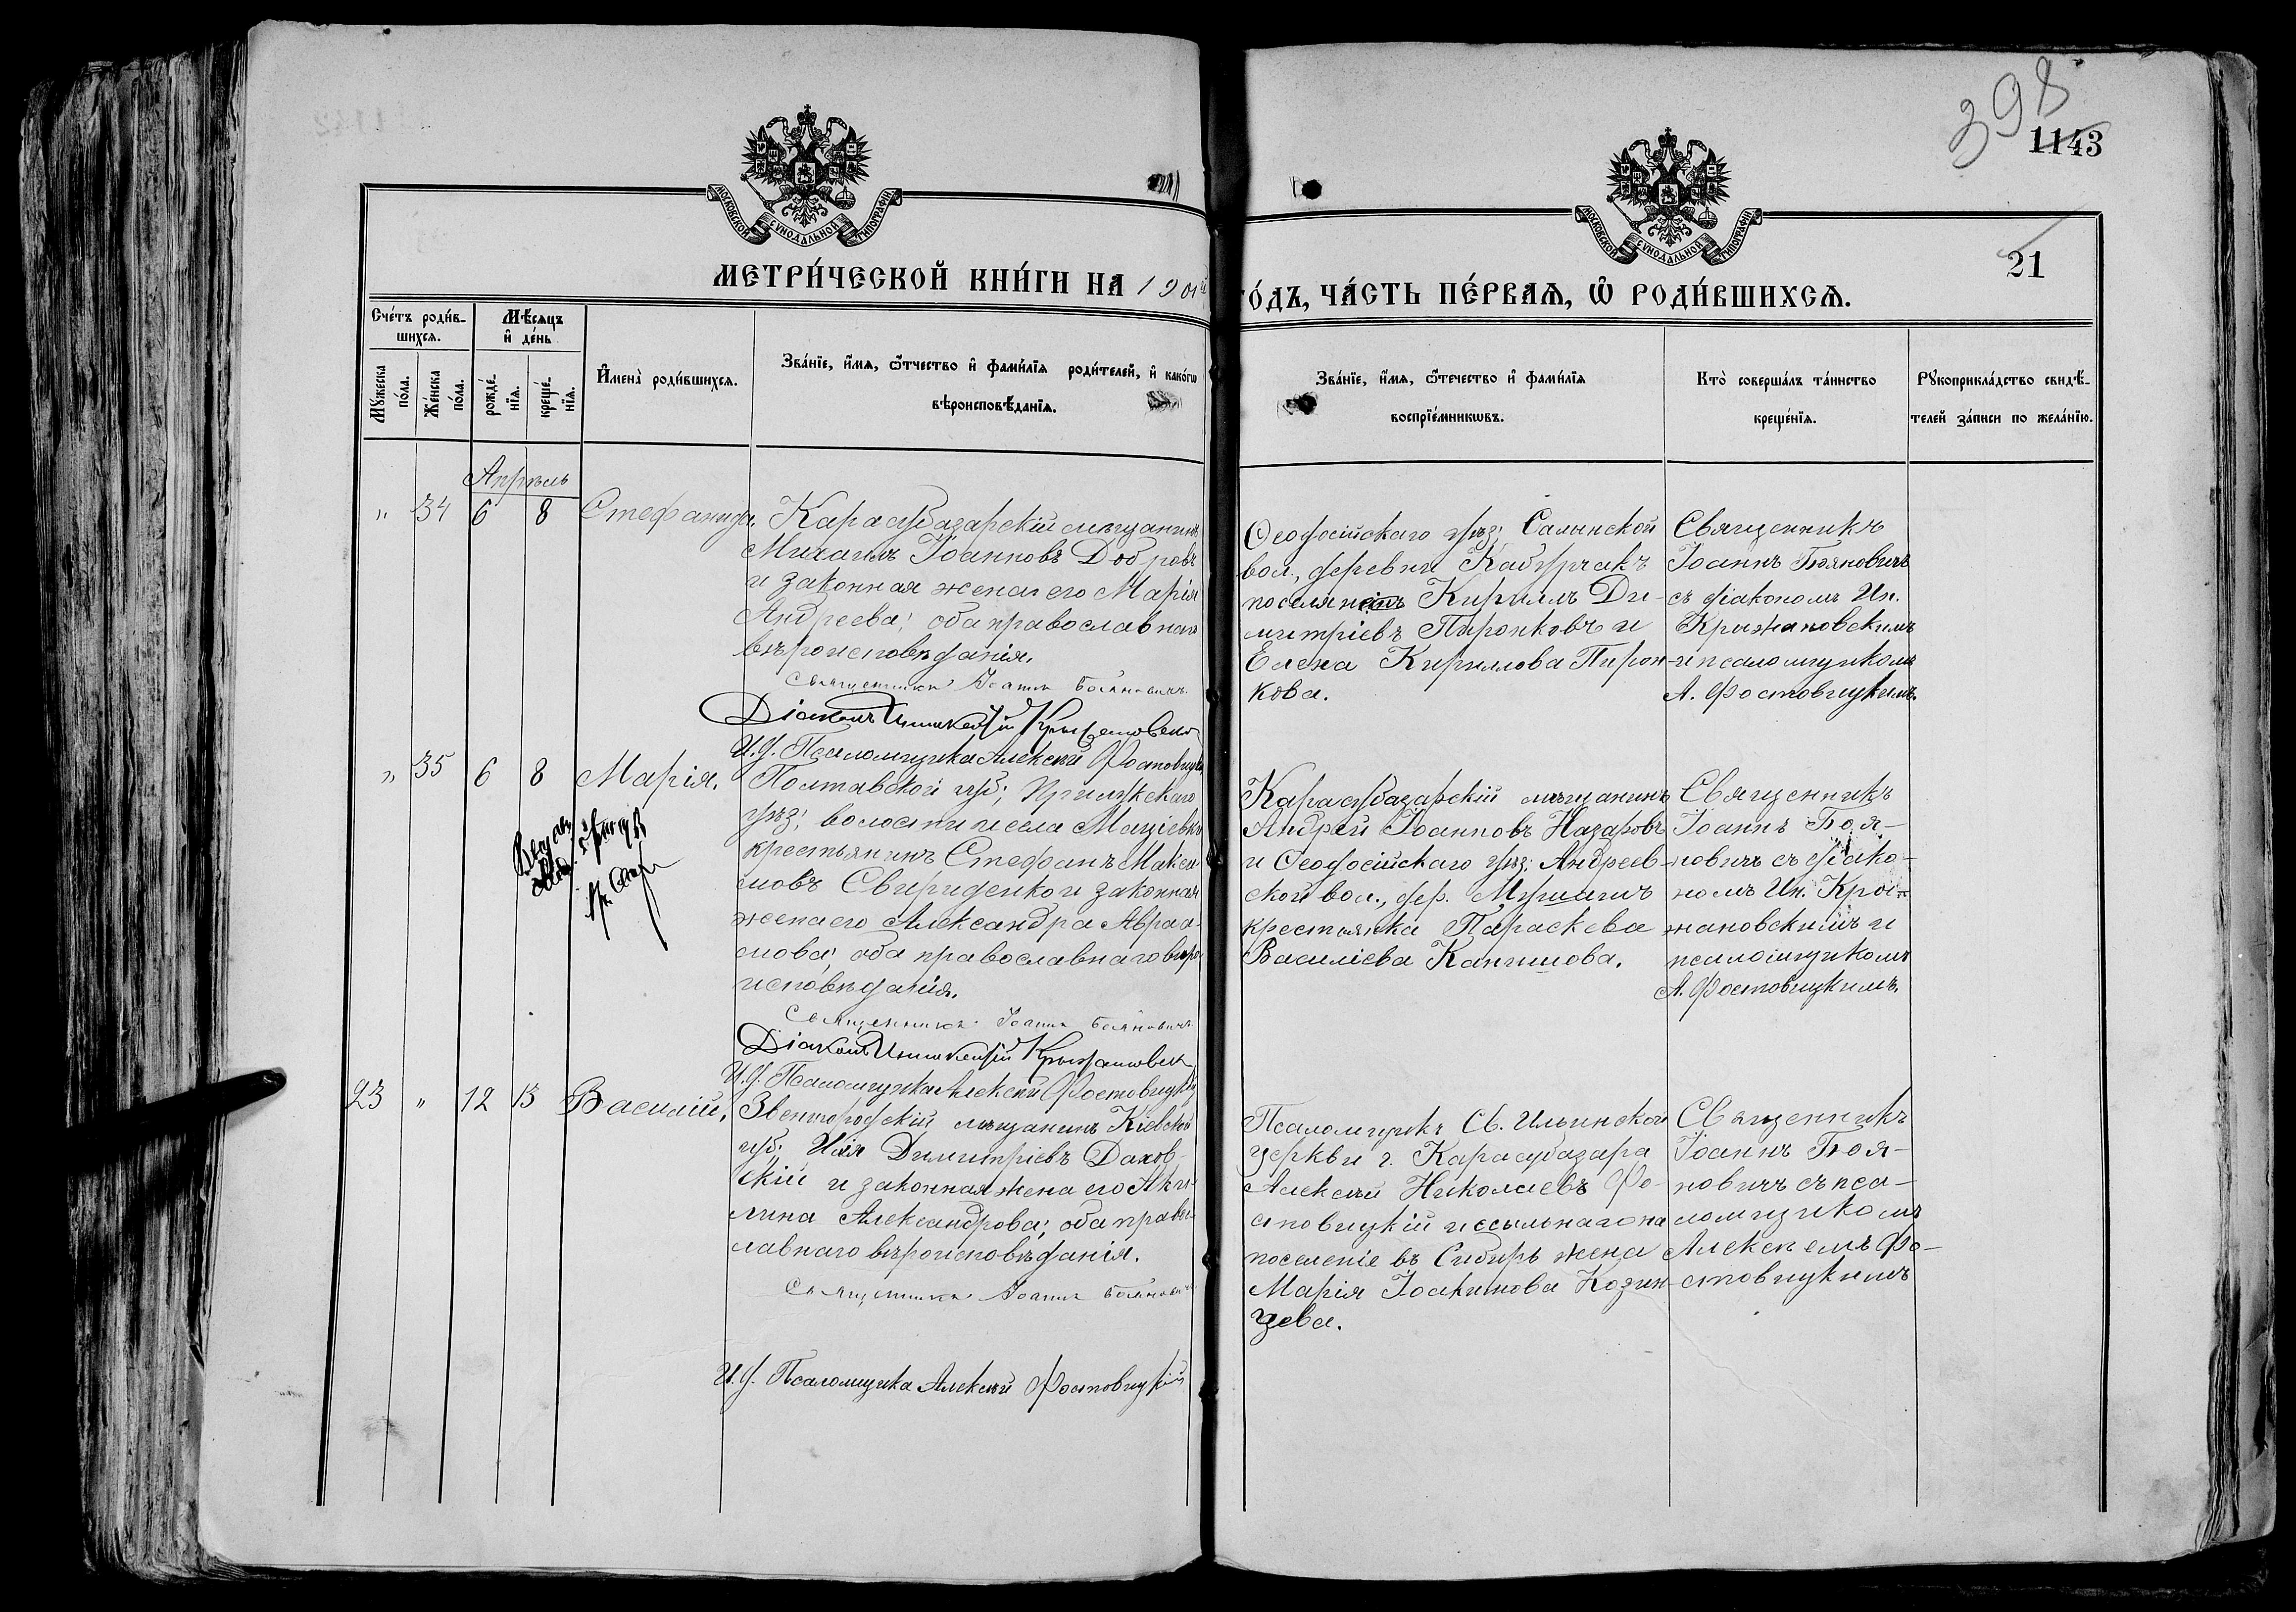 398
1143
21
МОСКОВСКОЙ СѴНОДАЛЬНОЙ ТИПОГРАФІИ
МОСКОВСКОЙ СѴНОДАЛЬНОЙ ТИПОГРАФІИ
МЕТРИ́ЧЕСКОЙ КНИ́ГИ НА 1901й
ГО́ДЪ, ЧА́СТЬ ПЕ́РВАѦ, Ѡ РОДИ́ВШИХСѦ.
Сче́тъ роди́в-
шихсѧ.
Мѣ́сѧцъ
и҆ де́нь
Мꙋ́жеска по́ла.
Же́нска по́ла.
рожде́-
нїѧ.
креще́-
нїѧ.
И҆мена̀ роди́вшихсѧ.
Зва́нїе, и҆́мѧ, ѻ҆́тчество и҆ фами́лїѧ роди́телей, и҆ како́гѡ
вѣроисповѣ́данїѧ.
Зва́нїе, и҆́мѧ, ѻ҆́течество и҆ фами́лїѧ
воспрїе́мникѡвъ.
Кто̀ соверша́лъ та́инство
креще́нїѧ.
Рꙋкоприкла́дство свидѣ́-
телей за́писи по жела́нїю.
Апрѣль
" 34 6 8 Стефанида,
Карасубазарскій мѣщанинъ
Михаилъ Іоанновъ Добровъ
и законная жена его Марія
Андреева; оба православнаго
вѣроисповѣданія.
Священникъ Іоаннъ Бояновичъ
Діаконъ Иннокентій Крыжановскій
И.д. Псаломщика Алексѣй Фостовицкій
Ѳеодосійскаго уѣз; Салынской
вол., деревни Кабурчакъ
поселянинъ Кириллъ Ди-
митріевъ Пиронковъ и
Елена Кириллова Пирон-
кова.
Священникъ
Іоаннъ Бояновичъ
съ діакономъ Ин.
Крыжановскимъ
и псаломщикомъ
А. Фостовицкимъ.
" 35 6 8 Марія.
Полтавской губ; Прилукскаго
уѣз; волости и села Мацѣевки
крестьянинъ Стефанъ Макси-
мовъ Свириденко и законная
жена его Александра Авраа-
мова; оба православнаго вѣро-
исповѣданія.
Священникъ Іоаннъ Бояновичъ
Діаконъ Иннокентій Крыжановскій
И.д. Псаломщика Алексѣй Фостовицкій
Карасубазарскій мѣщанинъ
Андрей Іоанновъ Назаровъ
и Ѳеодосійскаго уѣз; Андреев-
ской вол., дер.
крестьянка Параскева
Василіева
Священникъ
Іоаннъ Боя-
новичъ съ діако-
номъ Ин. Кры-
жановскимъ и
псаломщикомъ
А. Фостовицкимъ.
23 " 12 13 Василій,
Звенигородскій мѣщанинъ Кіевской
губ; Илія Димитріевъ Дахов-
скій и законная жена его Аки-
лина Александрова; оба правос-
лавнаго вѣроисповѣданія.
Священникъ Іоаннъ Бояновичъ
И.д. Псаломщика Алексѣй Фостовицкій
Псаломщикъ Св. Ильинской
церкви г. Карасубазара
Алексѣй Николаевъ Фо-
стовицкій и ссыльнаго на
поселеніе въ Сибирь жена
Марія Іоакимова Козин-
цева.
Священникъ
Іоаннъ Боя-
новичъ съ пса-
ломщикомъ
Алексѣемъ Фо-
стовицкимъ